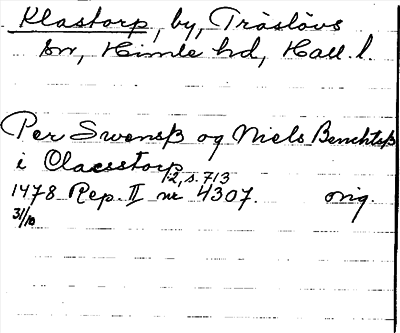 Klastorp, by, Träslövs
sn, Himle hd, Hall. l.
Per Swensß og Niels Benchtsß
i Olacstorp
1478 Rep. II 1-2, s. 713 nr 4307. orig.
31/10